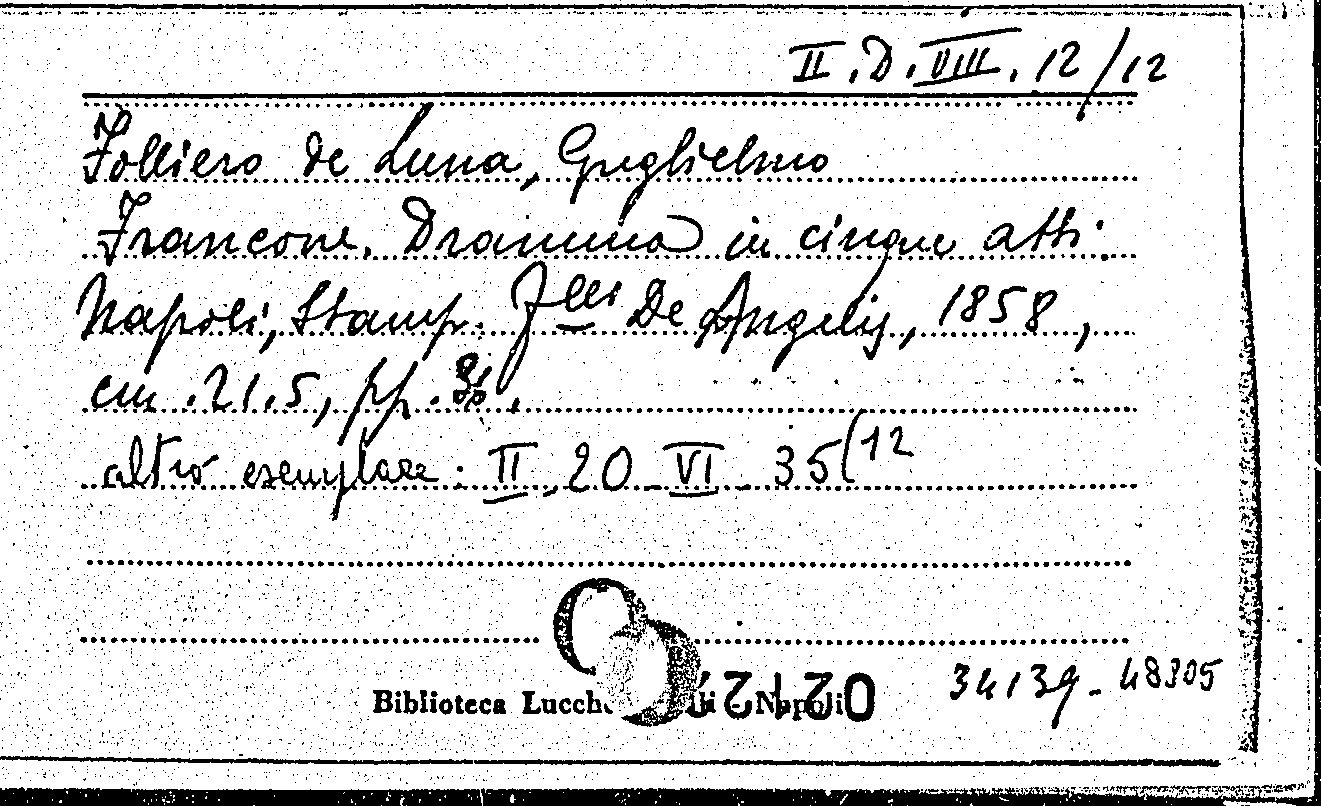 II.D.VIII.12/12
Folliero de Luna, Guglielmo
Francone. Dramma in cinque atti.
Napoli, Stamp. Flli De Angelis, 1858,
cm.21.5, pp.
altro esemplare: II.20.VI.35(12
Biblioteca Napoli
34139-48305